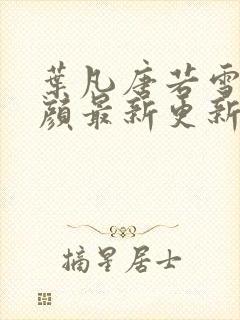 葉凡唐若雪
顏最新更新
摘星居士